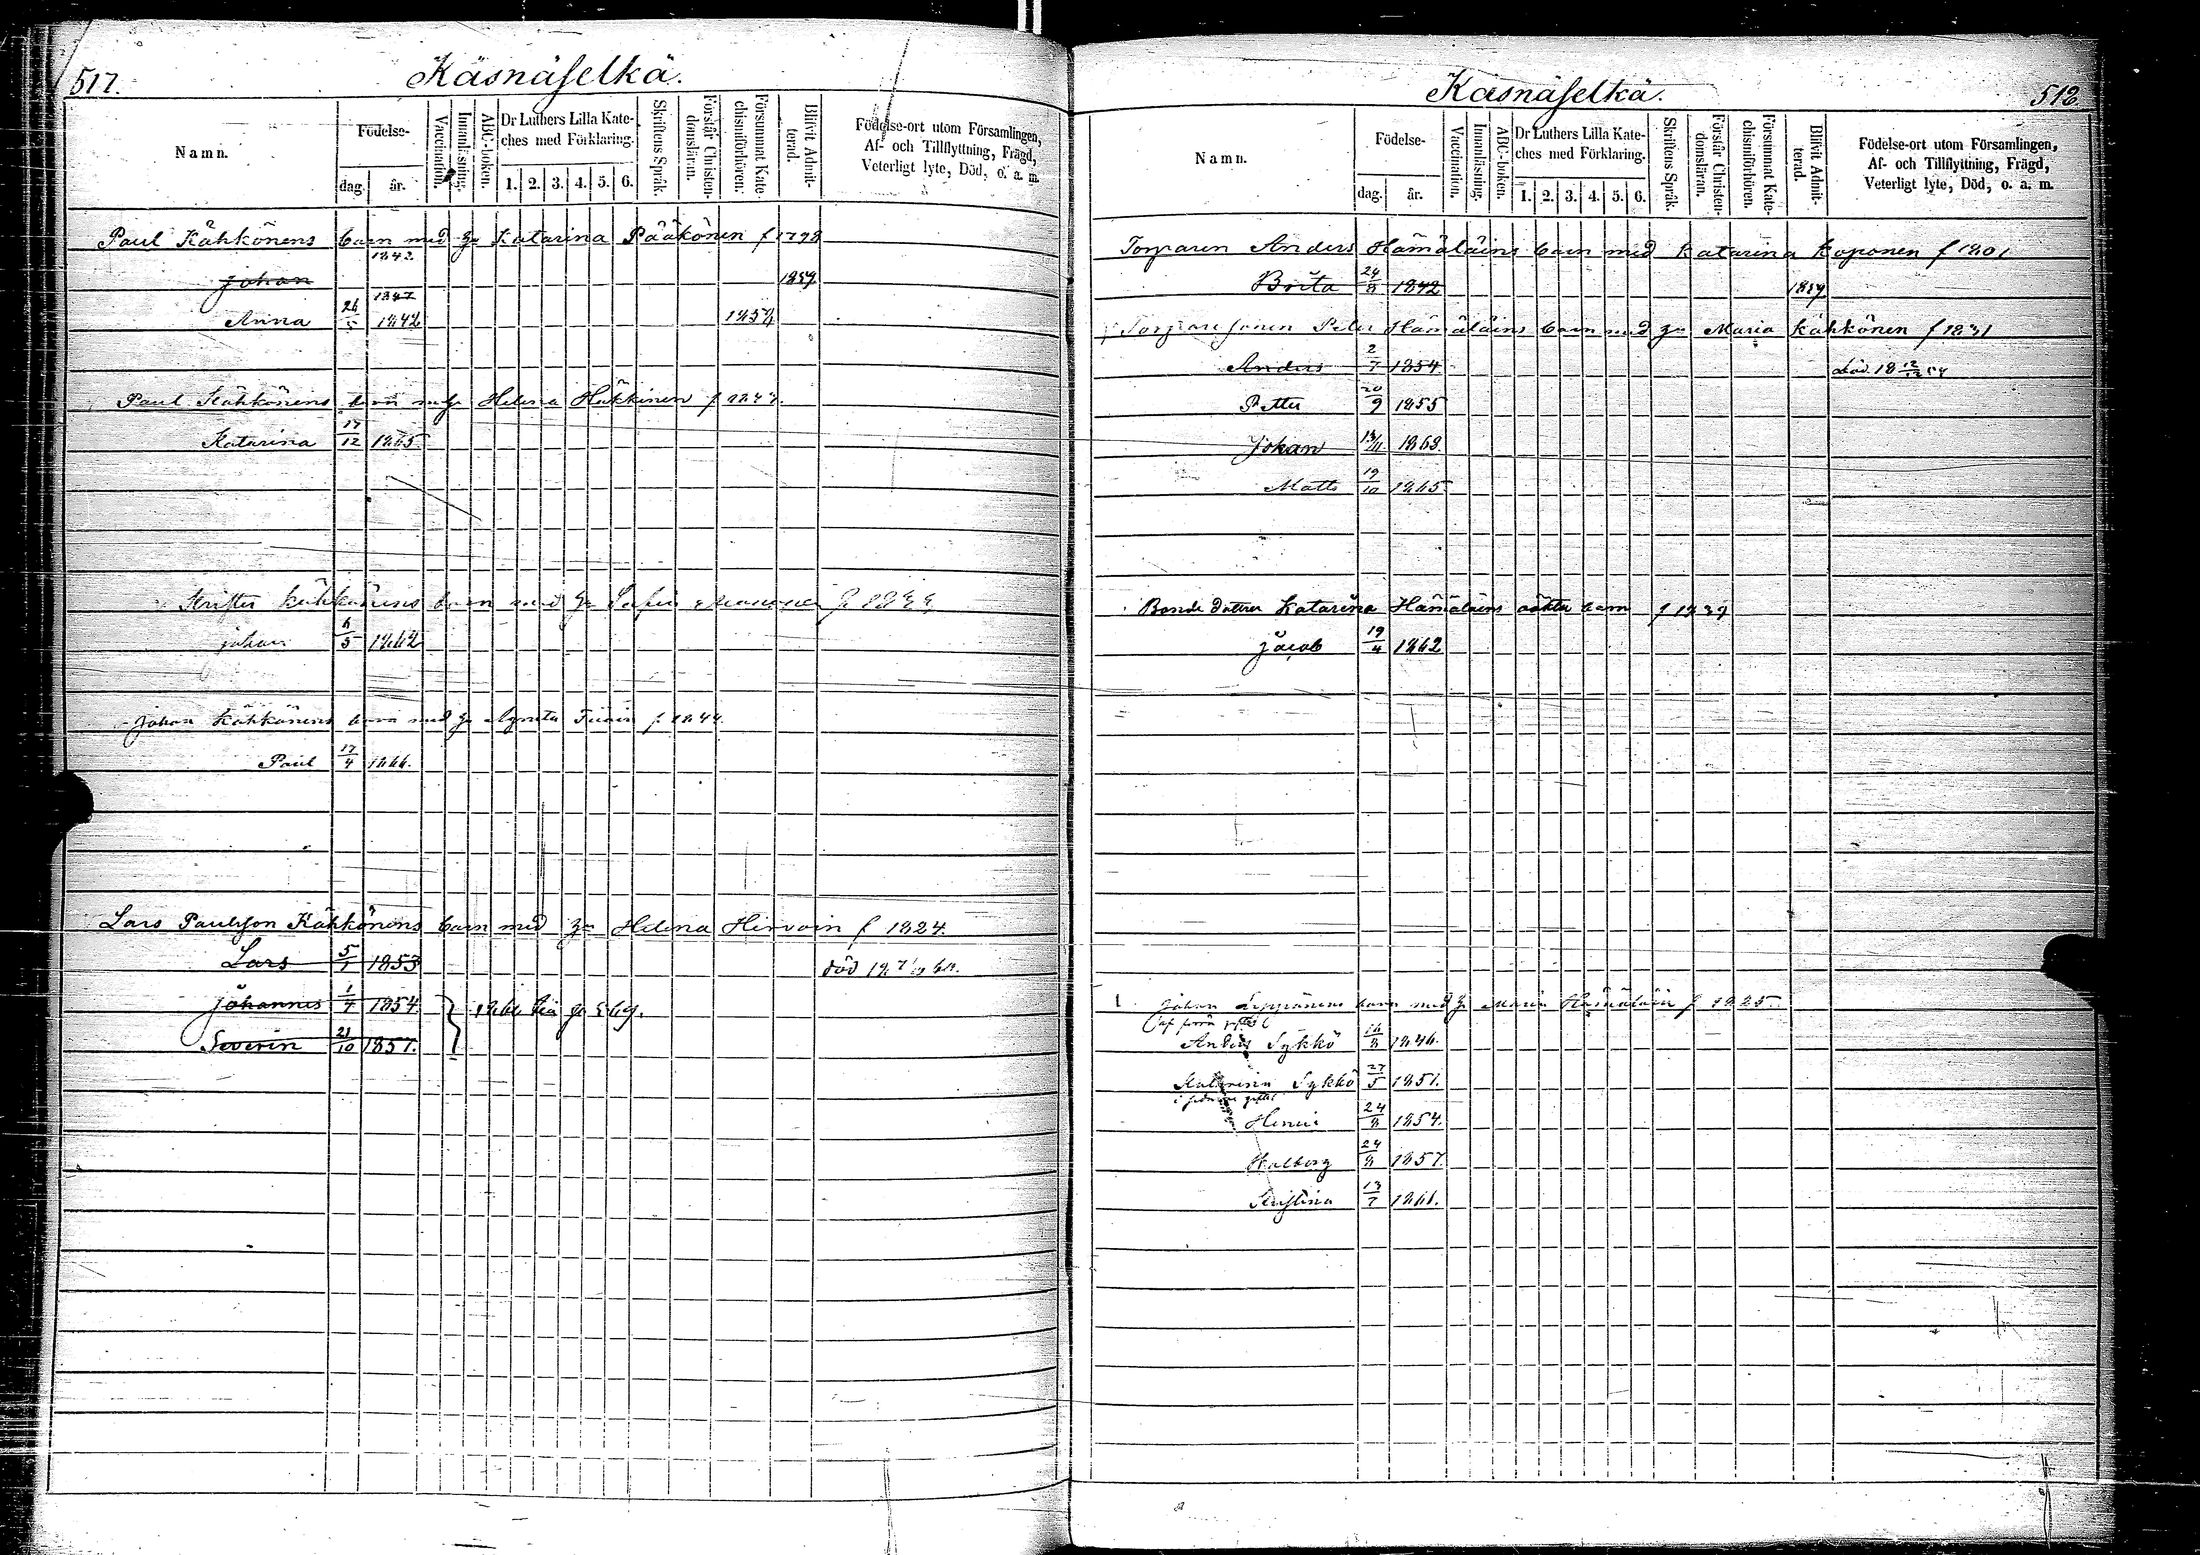 517.
Käsnäselkä.
Namn.
Födelse-
dag. år.
Vaccination.
Innanläsning.
ABC-boken.
Dr Luthers Lilla Kate-
ches med Förklaring.
1. 2. 3. 4. 5. 6.
Skriftens Språk.
Förstår Christen-
domsläran.
Försummat Kate-
chismiförhören.
Blifvit Admit-
terad.
Födelse-ort utom Församlingen,
Af- och Tillflyttning, Frägd,
Veterligt lyte, Död, o. a. m.
Paul Kähkönens barn med Katarina Pääkönen f 1798
1842
Johan 1859
1847
Anna 26/5 1842 1857
Paul Kähkönens barn med Helena Häkkinen
Katarina 17/12 1865
Kähkönens barn med
Johan 6/5 1862
Johan Kähkönens barn med Agneta f 1844.
Paul 17/4 1866.
Lars Paulsson Kähkönens barn med Helena Hirvoin f 1824.
Lars 5/1 1853 död
Johannes 1/4 1854 1866
Severin 21/10 1857.
Käsnäselkä.
512
Namn.
Födelse-
dag. år.
Vaccination.
Innanläsning.
ABC-boken.
Dr Luthers Lilla Kate-
ches med Förklaring.
1. 2. 3. 4. 5. 6.
Skriftens Språk.
Förstår Christen-
domsläran.
Försummat Kate-
chismiförhören.
Blifvit Admit-
terad.
Födelse-ort utom Församlingen,
Af- och Tillflyttning, Frägd,
Veterligt lyte, Död, o. a. m.
Torparen Anders Hämäläins barn med Katarina Koponen f 1801
Brita 24/8 1842 1859
Torparesonen Peter Hämäläins barn med Maria Kähkönen f 1831
Anders 2/7 1854 död 18 12/12 54
Petter 20/9 1855
Johan 13/11 1863
Matts 19/10 1865
Bonde dottren Katarina Hämäläins oäkta barn f 1837
Jacob 19/4 1862
Johan Leppänens barn med Maria Hämäläin f 1825.
Anders Sykkö 16/8 1846.
Katarina Sykkö 27/5 1851.
Henric 24/8 1854.
Walborg 24/8 1857.
Kristina 13/7 1861.